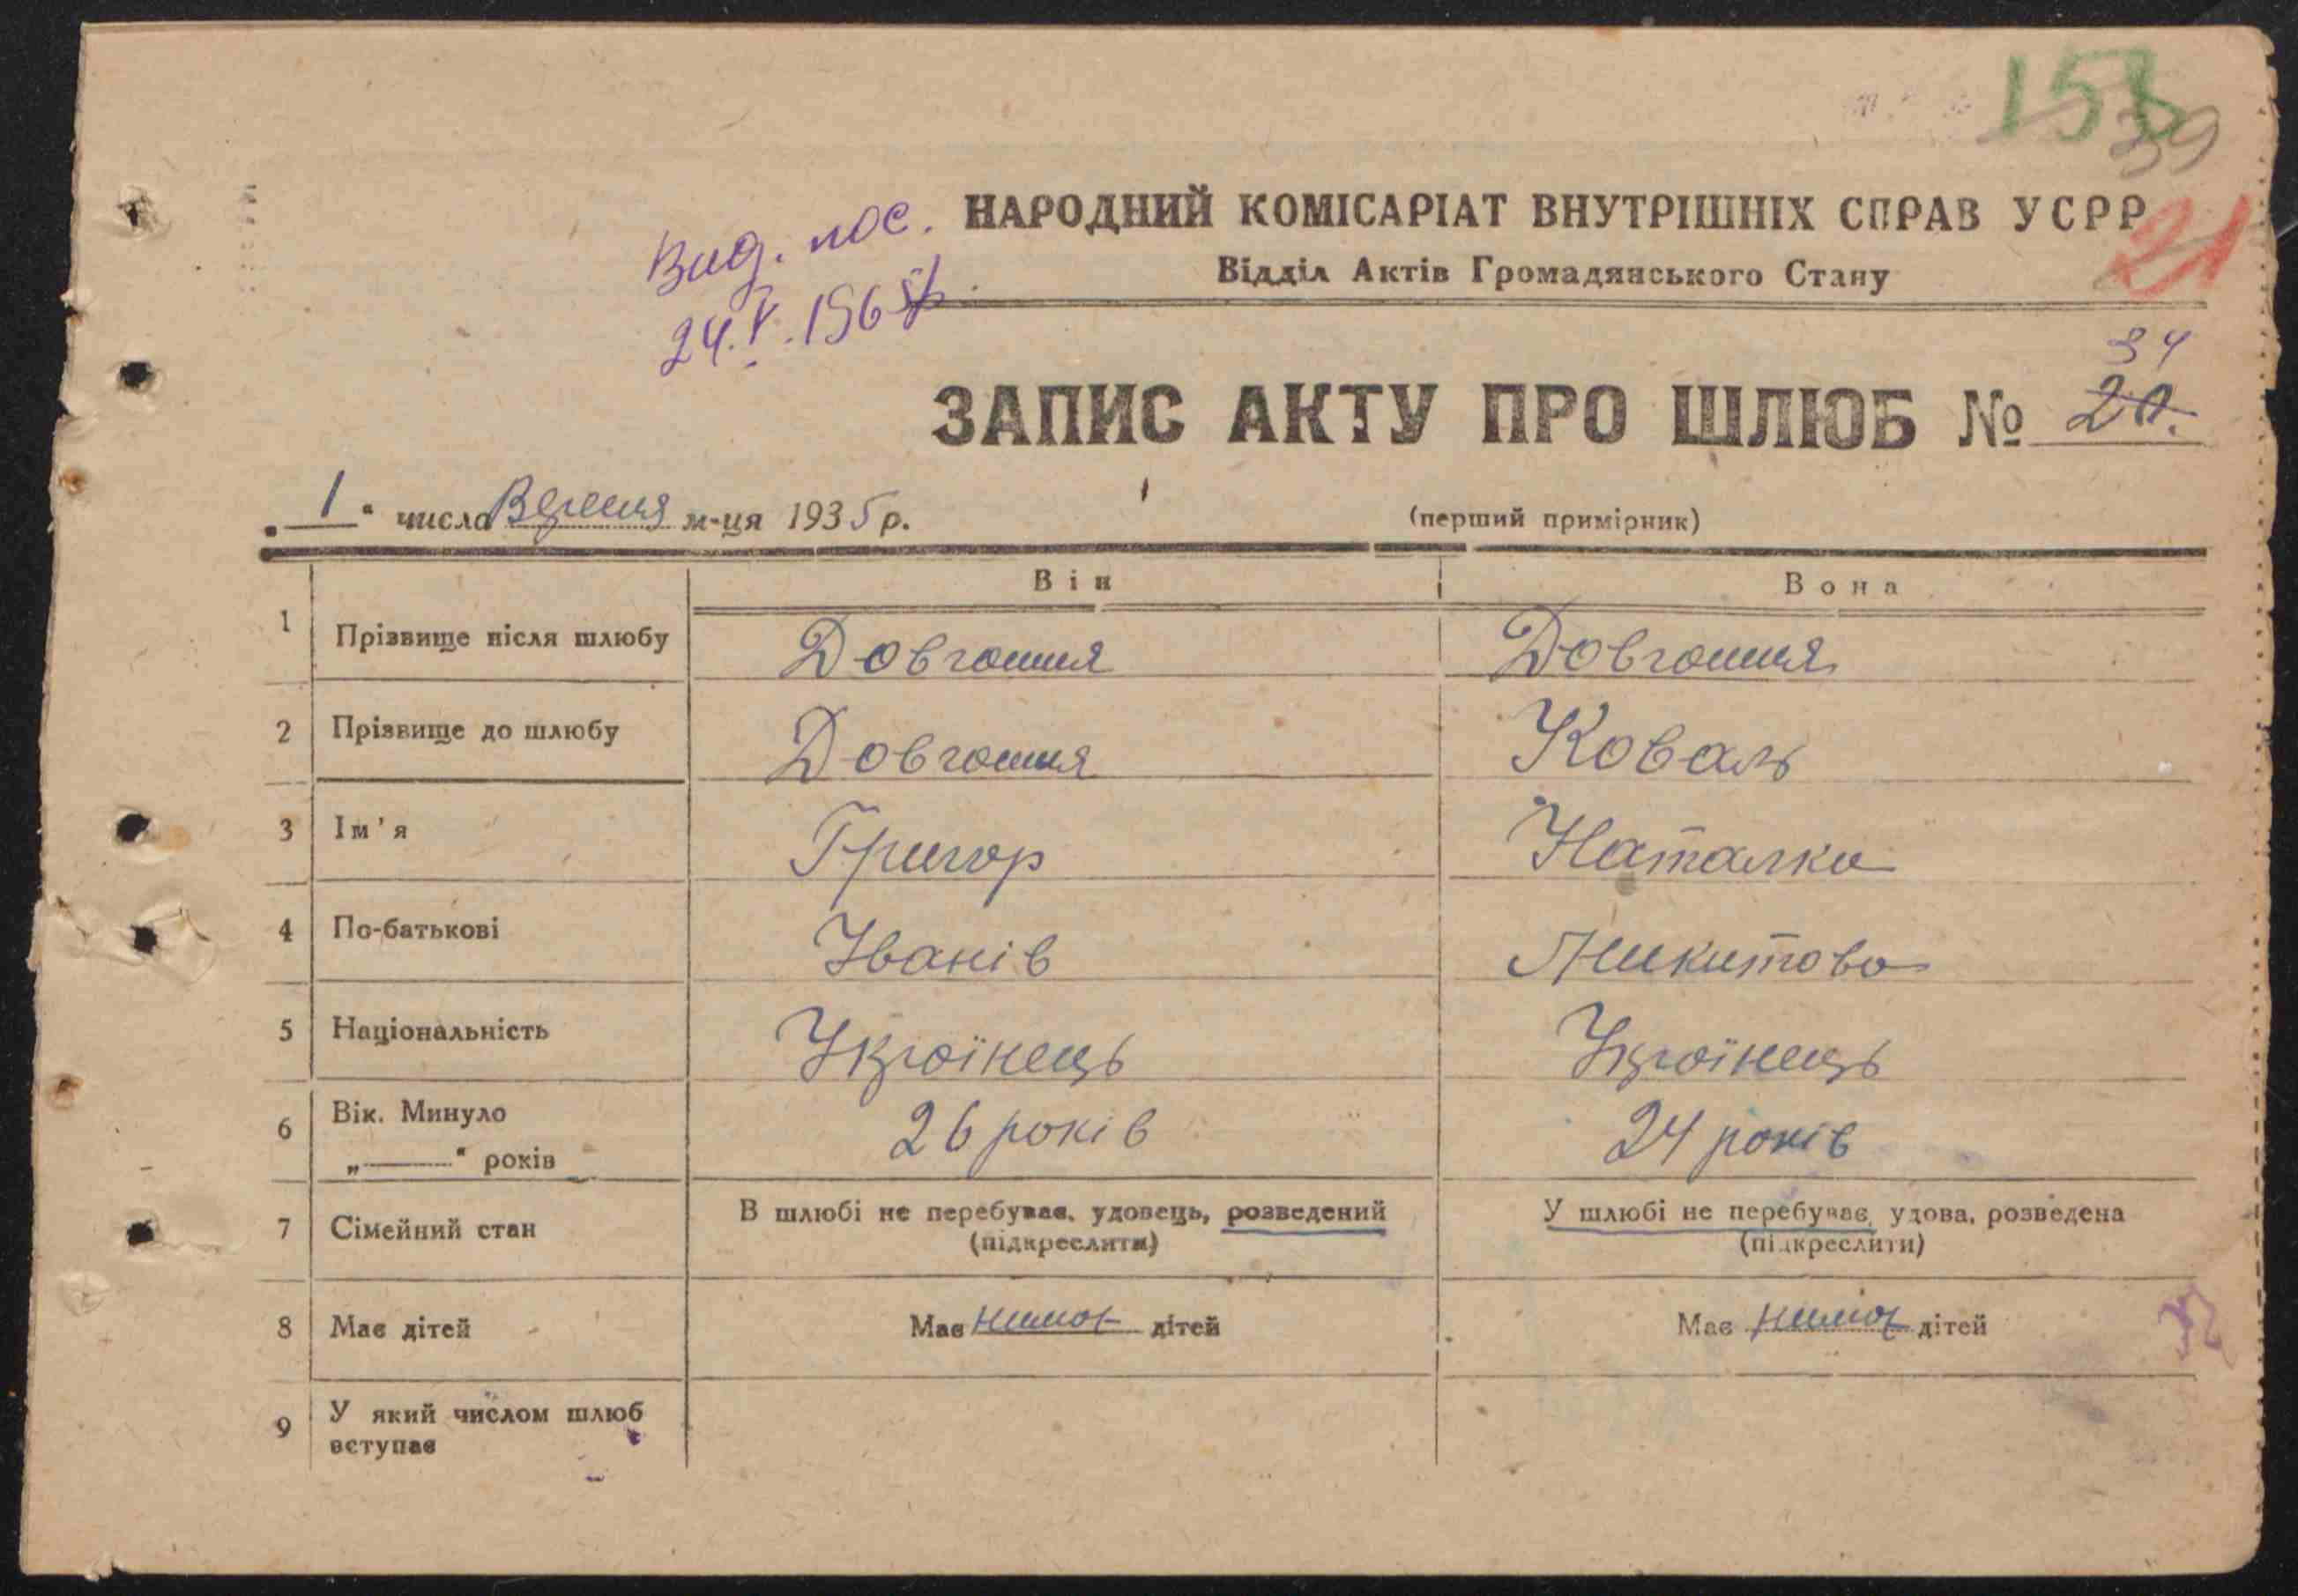 158
39
НАРОДНИЙ КОМІСАРІАТ ВНУТРІШНІХ СПРАВ УСРР
21
Вид. пос.
Відділ Актів Громадянського Стану
24.V.1965р.
34
ЗАПИС АКТУ ПРО ШЛЮБ № 20.
„ 1 “ числа Вересня м-ця 1935 р.
(перший примірник)
Він Вона
1 Прізвище після шлюбу Довгошия Довгошия
2 Прізвище до шлюбу Довгошия Коваль
3 Ім'я Григор Наталка
4 По-батькові Іванів Микитова
5 Національність Українець Українець
6 Вік. Минуло 26 років 24 років
„——“ років
7 Сімейний стан В шлюбі не перебуває, удовець, розведений У шлюбі не перебуває, удова, розведена
(підкреслити) (підкреслити)
8 Має дітей Має нимає дітей Має нимає дітей
9 У який числом шлюб
вступає